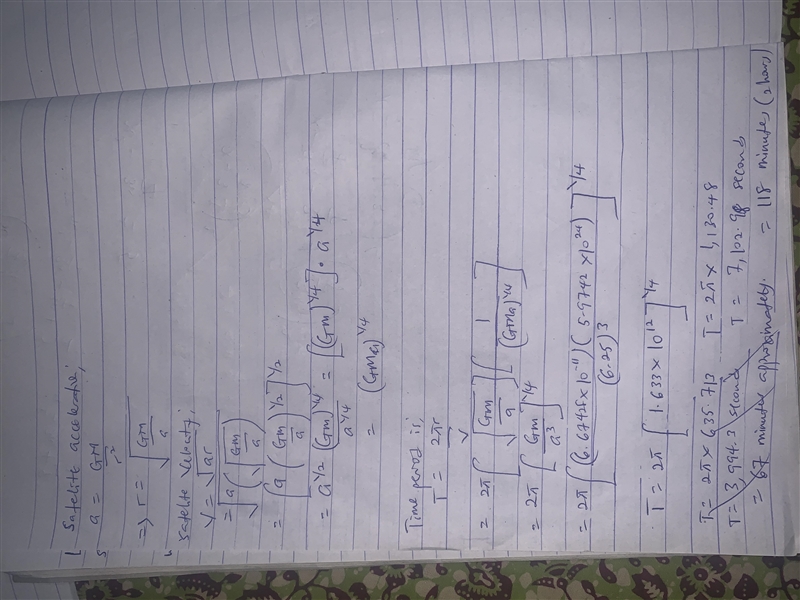 Satelite acceleration;
a = GM/r²
=> r = √(GM/a)
Satelite velocity;
V = √ar
= √(a(√(GM/a)))
= [a (GM/a)^1/2]^1/2
= a^1/2 (GM)^1/4 / a^1/4 = [(GM)^1/4] • a^1/4
= (GMa)^1/4
Time period is;
T = 2πr/V
= 2π [√(GM/a)] [1/(GMa)^1/4]
= 2π [GM/a³]^1/4
= 2π [(6.67428 x 10^-11)(5.9742 x 10^24) / (6.25)³]^1/4
T = 2π [1.633 x 10^12]^1/4
T = 2π x 635.713 T = 2π x 1,130.48
T = 3,994.3 seconds T = 7,102.98 seconds
= 67 minutes approximately. = 118 minutes (2 hours)